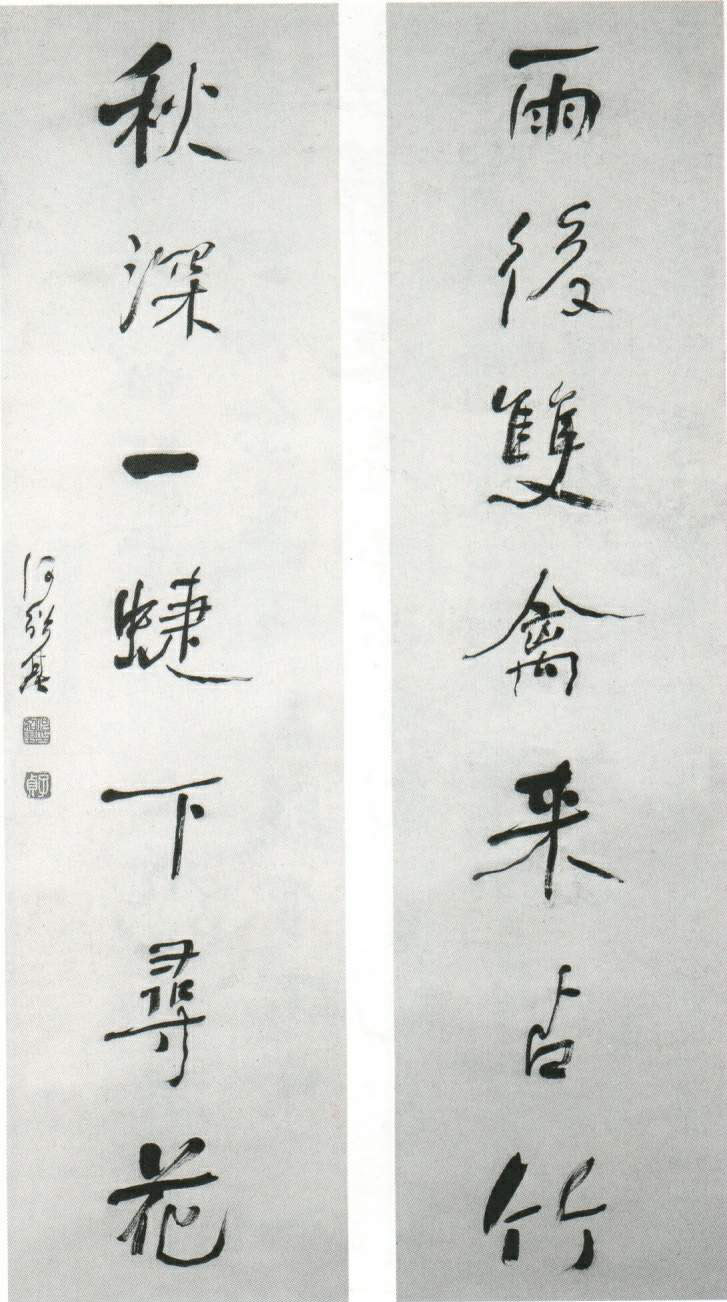 雨後雙禽来占竹
秋深一蜨下尋花
何紹基